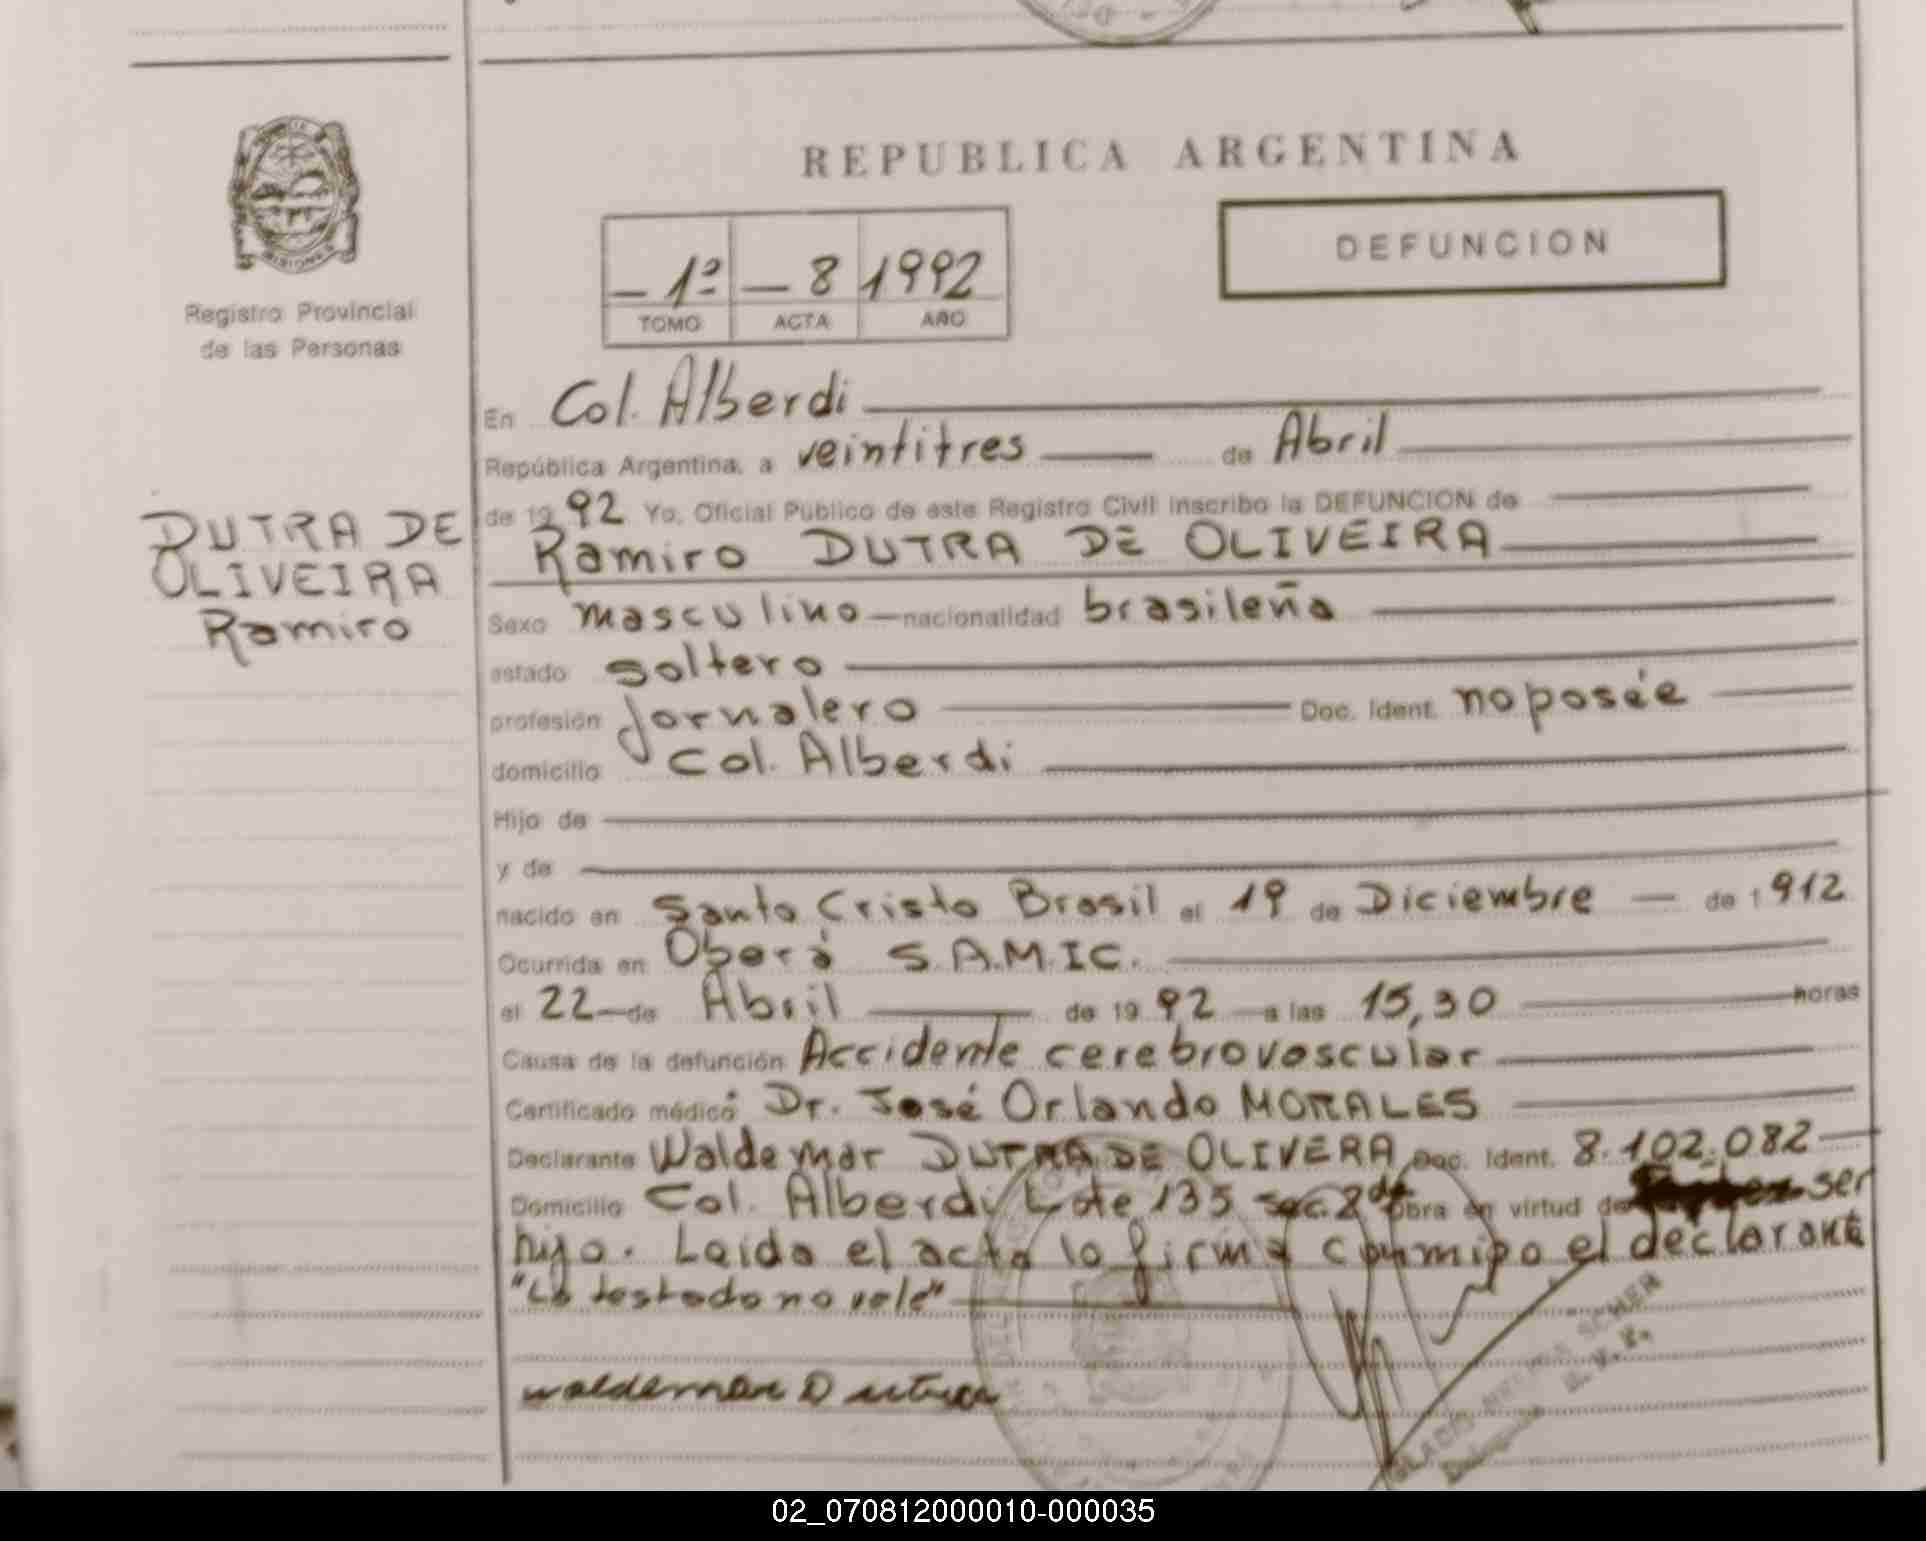 REPUBLICA ARGENTINA
DEFUNCION
MISIONES
Registro Provincial
de las Personas
1º 8 1992
TOMO ACTA AÑO
En Col. Alberdi
República Argentina, a veintitres de Abril
de 1992 Yo, Oficial Público de este Registro Civil inscribo la DEFUNCION de
DUTRA DE
OLIVEIRA
Ramiro
Ramiro DUTRA DE OLIVEIRA
Sexo masculino nacionalidad brasileña
estado soltero
profesión Jornalero Doc. Ident. no posée
domicilio Col. Alberdi
Hijo de
y de
nacido en Santo Cristo Brasil el 19 de Diciembre de 1912
Ocurrida en Oberá S.A.M.I.C.
el 22 de Abril de 1992 a las 15,30 horas
Causa de la defunción Accidente cerebrovascular
Certificado médico Dr. José Orlando MORALES
Declarante Waldemar DUTRA DE OLIVERA Doc. Ident. 8.102.082
Domicilio Col. Alberdi Lote 135 sec. 2da Obra en virtud de ser
hijo. Leida el acta la firma conmigo el declarante
"Lo testado no vale"
waldemar Dutra
SCHER
02_070812000010-000035